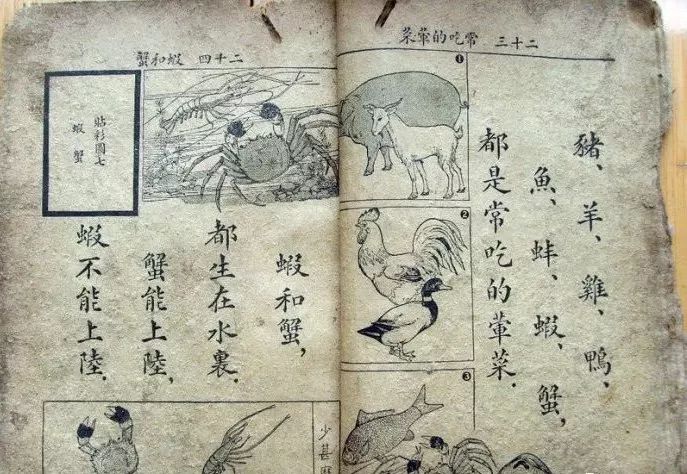 二十三 常吃的葷菜
豬、羊、雞、鴨、
魚、蚌、蝦、蟹、
都是常吃的葷菜.
❶
❷
❸
二十四 蝦和蟹
蝦和蟹,
都生在水裏.
蟹能上陸,
蝦不能上陸.
貼彩圖七
蝦 蟹
少甚